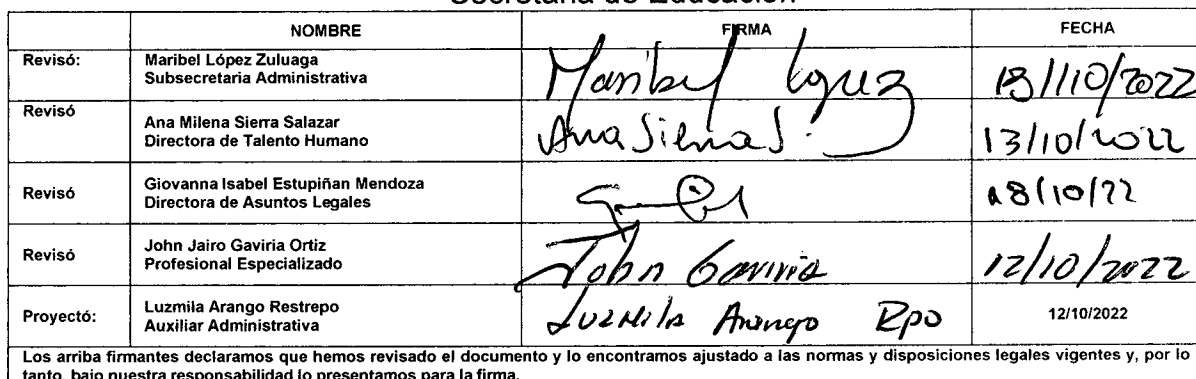 Secretaría de Educación
NOMBRE FIRMA FECHA
Revisó: Maribel López Zuluaga
Subsecretaria Administrativa
Maribel López 18/10/2022
Revisó Ana Milena Sierra Salazar
Directora de Talento Humano
Ana Sierra S. 13/10/2022
Revisó Giovanna Isabel Estupiñan Mendoza
Directora de Asuntos Legales
18/10/22
Revisó John Jairo Gaviria Ortiz
Profesional Especializado
John Gaviria 12/10/2022
Proyectó: Luzmila Arango Restrepo
Auxiliar Administrativa
Luzmila Arango Rpo 12/10/2022
Los arriba firmantes declaramos que hemos revisado el documento y lo encontramos ajustado a las normas y disposiciones legales vigentes y, por lo
tanto, bajo nuestra responsabilidad lo presentamos para la firma.